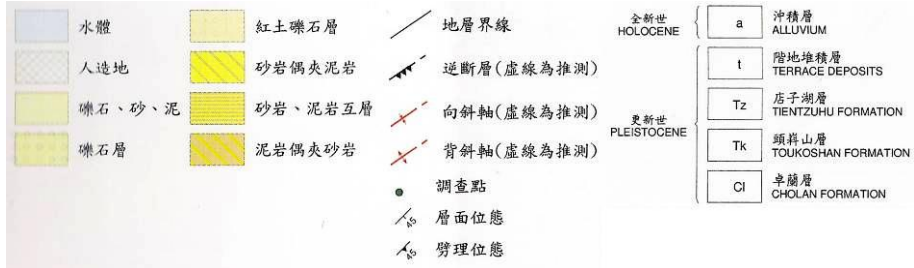 水體
人造地
礫石、砂、泥
礫石層
紅土礫石層
砂岩偶夾泥岩
砂岩、泥岩互層
泥岩偶夾砂岩
地層界線
逆斷層(虛線為推測)
向斜軸(虛線為推測)
背斜軸(虛線為推測)
調查點
45 層面位態
45 劈理位態
全新世
HOLOCENE
a
沖積層
ALLUVIUM
更新世
PLEISTOCENE
t
階地堆積層
TERRACE DEPOSITS
Tz
店子湖層
TIENTZUHU FORMATION
Tk
頭嵙山層
TOUKOSHAN FORMATION
Cl
卓蘭層
CHOLAN FORMATION